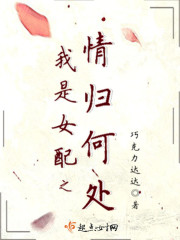 我是女配之
情归何处
巧克力达达 著
起点女生网